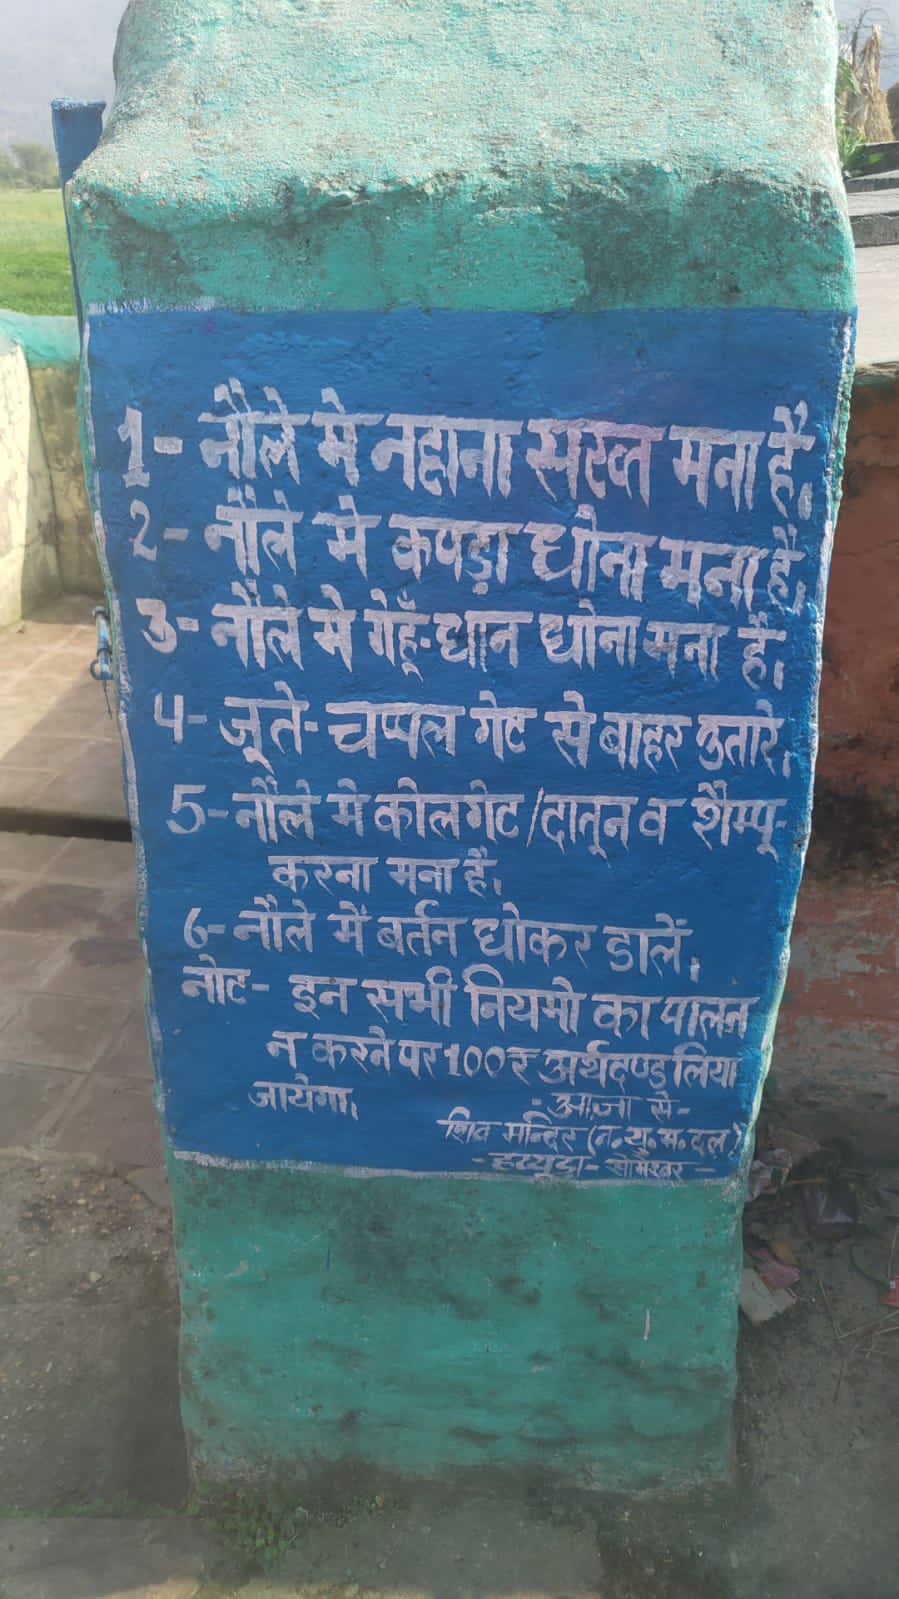 1- नौले मे नहाना सख्त मना है.
2- नौले मे कपड़ा धोना मना है.
3- नौले मे गेहूँ-धान धोना मना है.
4- जूते-चप्पल गेट से बाहर उतारे.
5- नौले मे कोलगेट/दातून व शैम्पू-
करना मना है.
6- नौले में बर्तन धोकर डालें.
नोट- इन सभी नियमो का पालन
न करने पर 100 रु अर्थदण्ड लिया
जायेगा.
- आज्ञा से -
शिव मन्दिर (न.यु.म.दल)